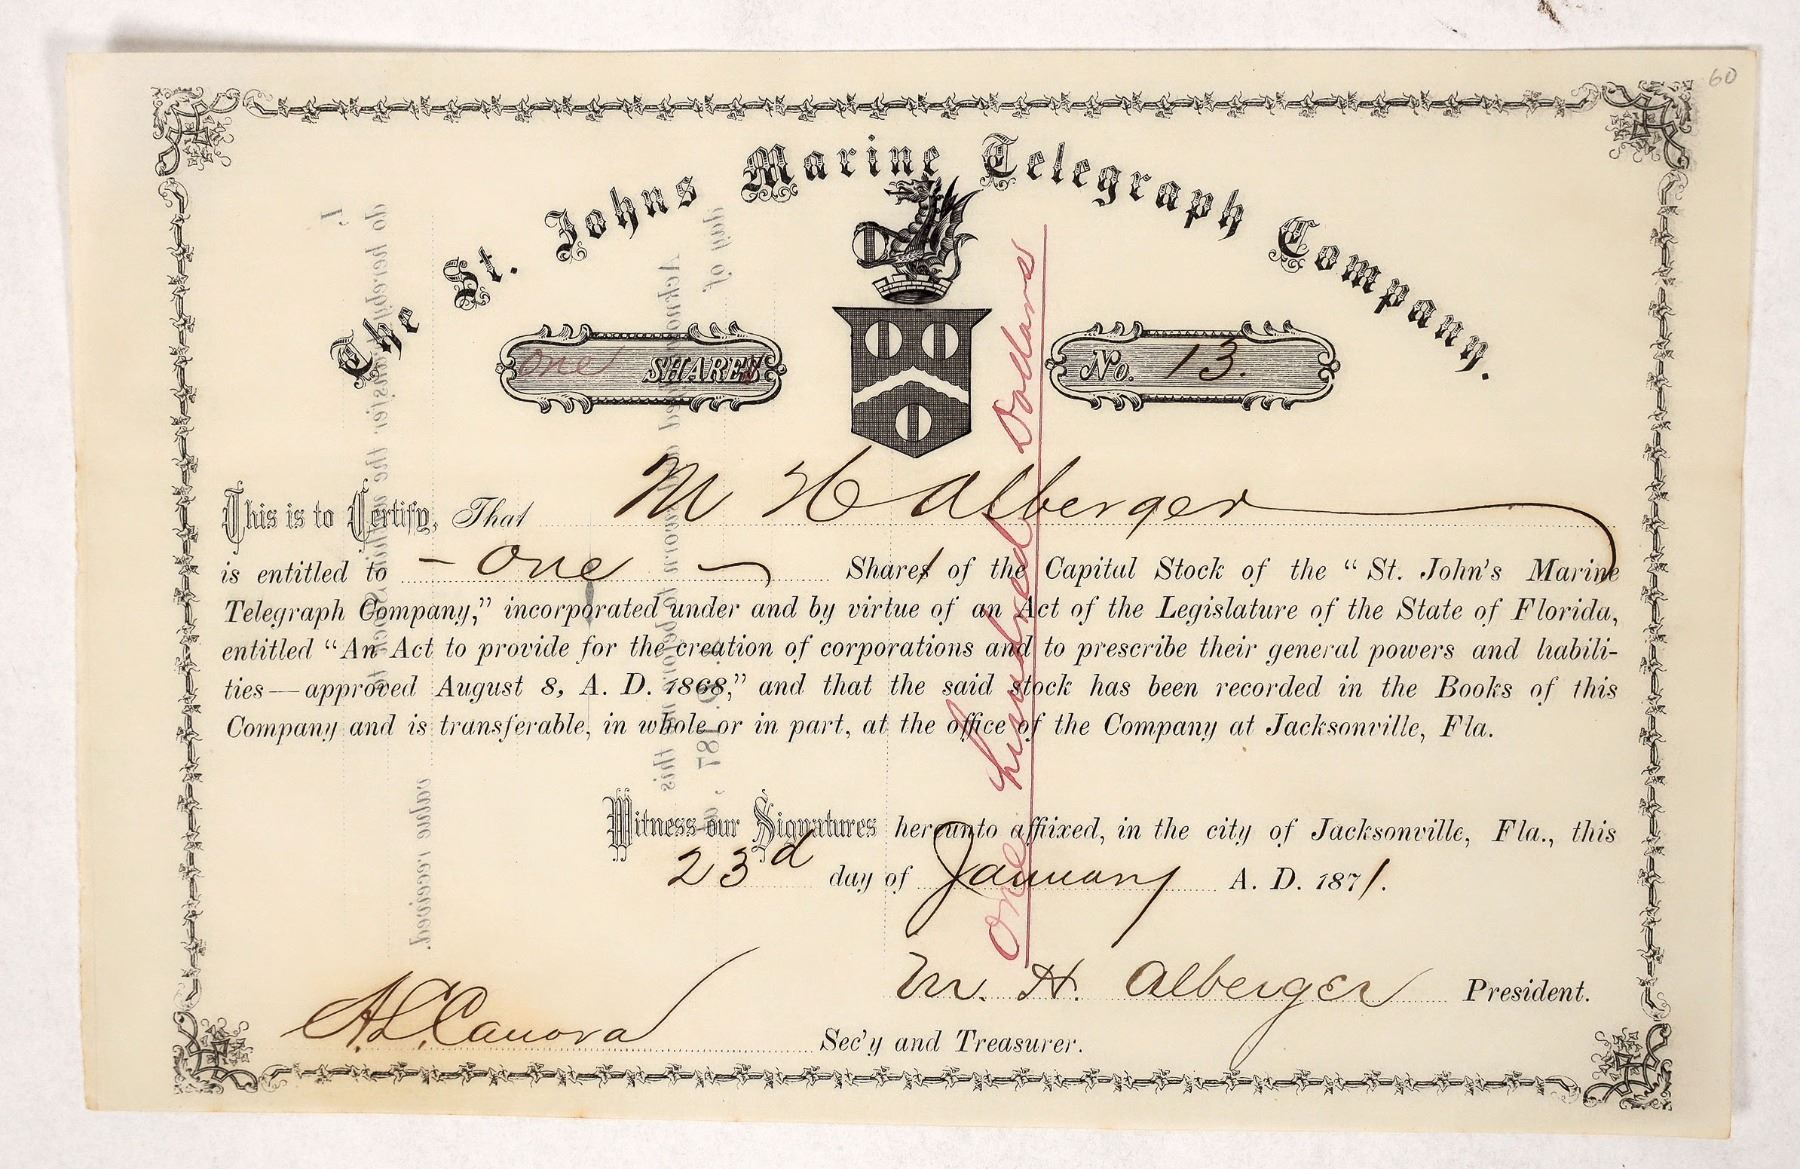 60
The St. Johns Marine Telegraph Company.
one SHARES
No. 13.
This is to Certify, That M H Alberger
is entitled to – one – Shares of the Capital Stock of the “St. John's Marine
Telegraph Company,” incorporated under and by virtue of an Act of the Legislature of the State of Florida,
entitled “An Act to provide for the creation of corporations and to prescribe their general powers and liabili-
ties—approved August 8, A. D. 1868,” and that the said stock has been recorded in the Books of this
Company and is transferable, in whole or in part, at the office of the Company at Jacksonville, Fla.
One hundred Dollars
Witness our Signatures hereunto affixed, in the city of Jacksonville, Fla., this
23d day of January A. D. 1871.
M. H. Alberger President.
A. L. Canova Sec'y and Treasurer.
I,
do hereby transfer the within Stock to
value received.
day of 187